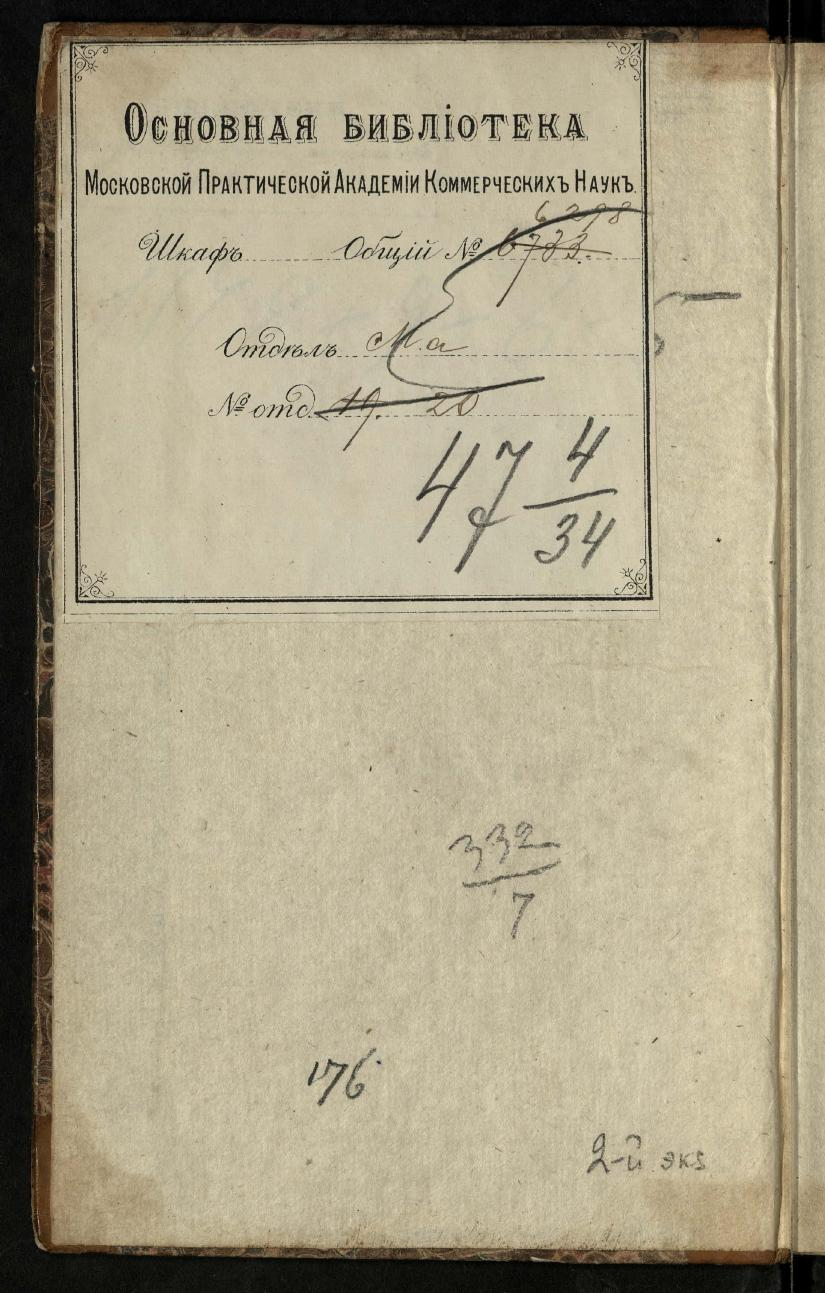 Основная библіотека
Московской Практической Академіи Коммерческихъ Наукъ.
6298
Шкафъ Общій № 6783.
Отдѣлъ Ма
№ отд. 19. 20
47 4
34
332
7
176
2-й экз